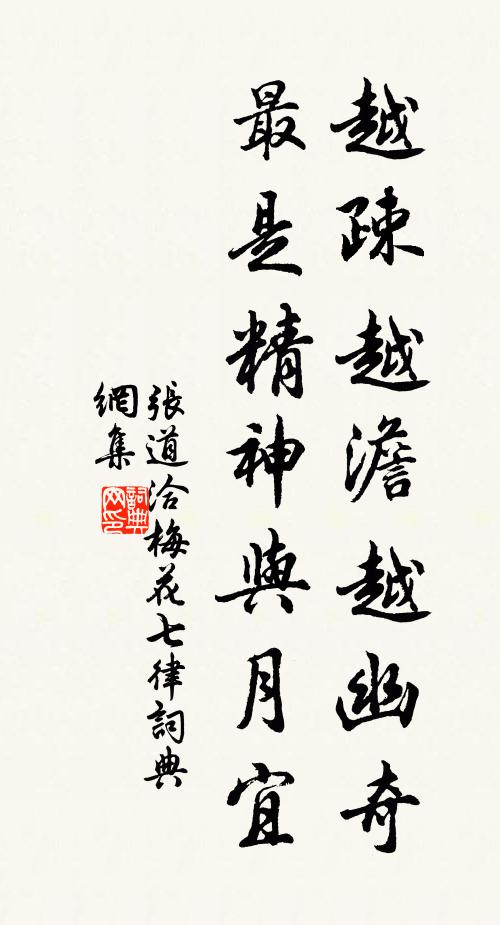 越疎越澹越幽奇
最是精神與月宜
張道洽梅花七律詞典
網集
詞典
网印